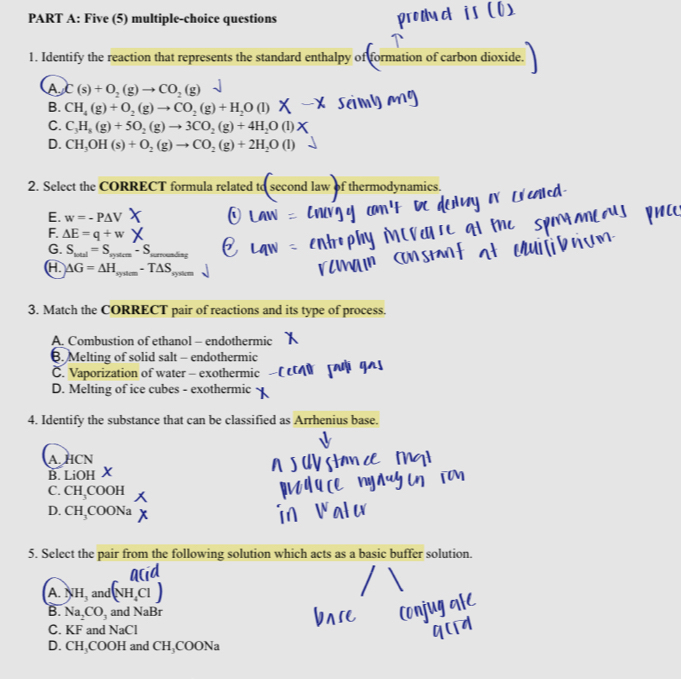 PART A: Five (5) multiple-choice questions
product is CO2
1. Identify the reaction that represents the standard enthalpy of (formation of carbon dioxide.)
A. C (s) + O₂ (g) → CO₂ (g) ✓
B. CH₄ (g) + O₂ (g) → CO₂ (g) + H₂O (l) X – X
C. C₃H₈ (g) + 5O₂ (g) → 3CO₂ (g) + 4H₂O (l) X
D. CH₃OH (s) + O₂ (g) → CO₂ (g) + 2H₂O (l) ✓
2. Select the CORRECT formula related to (second law) of thermodynamics.
E. w = - PΔV X
① Law = energy can't be destroy or created.
F. ΔE = q + w X
② Law = entrophy increase at the spontaneous
G. S total = S system - S surrounding
remain constant at equilibrium.
H. ΔG = ΔH system - TΔS system ✓
3. Match the CORRECT pair of reactions and its type of process.
A. Combustion of ethanol – endothermic X
B. Melting of solid salt – endothermic
C. Vaporization of water – exothermic gas
D. Melting of ice cubes - exothermic X
4. Identify the substance that can be classified as Arrhenius base.
A. HCN
B. LiOH X
C. CH₃COOH X
D. CH₃COONa X
A substance that
produce ion
in water
5. Select the pair from the following solution which acts as a basic buffer solution.
acid
A. NH₃ and (NH₄Cl)
B. Na₂CO₃ and NaBr
C. KF and NaCl
D. CH₃COOH and CH₃COONa
base
conjugate
acid